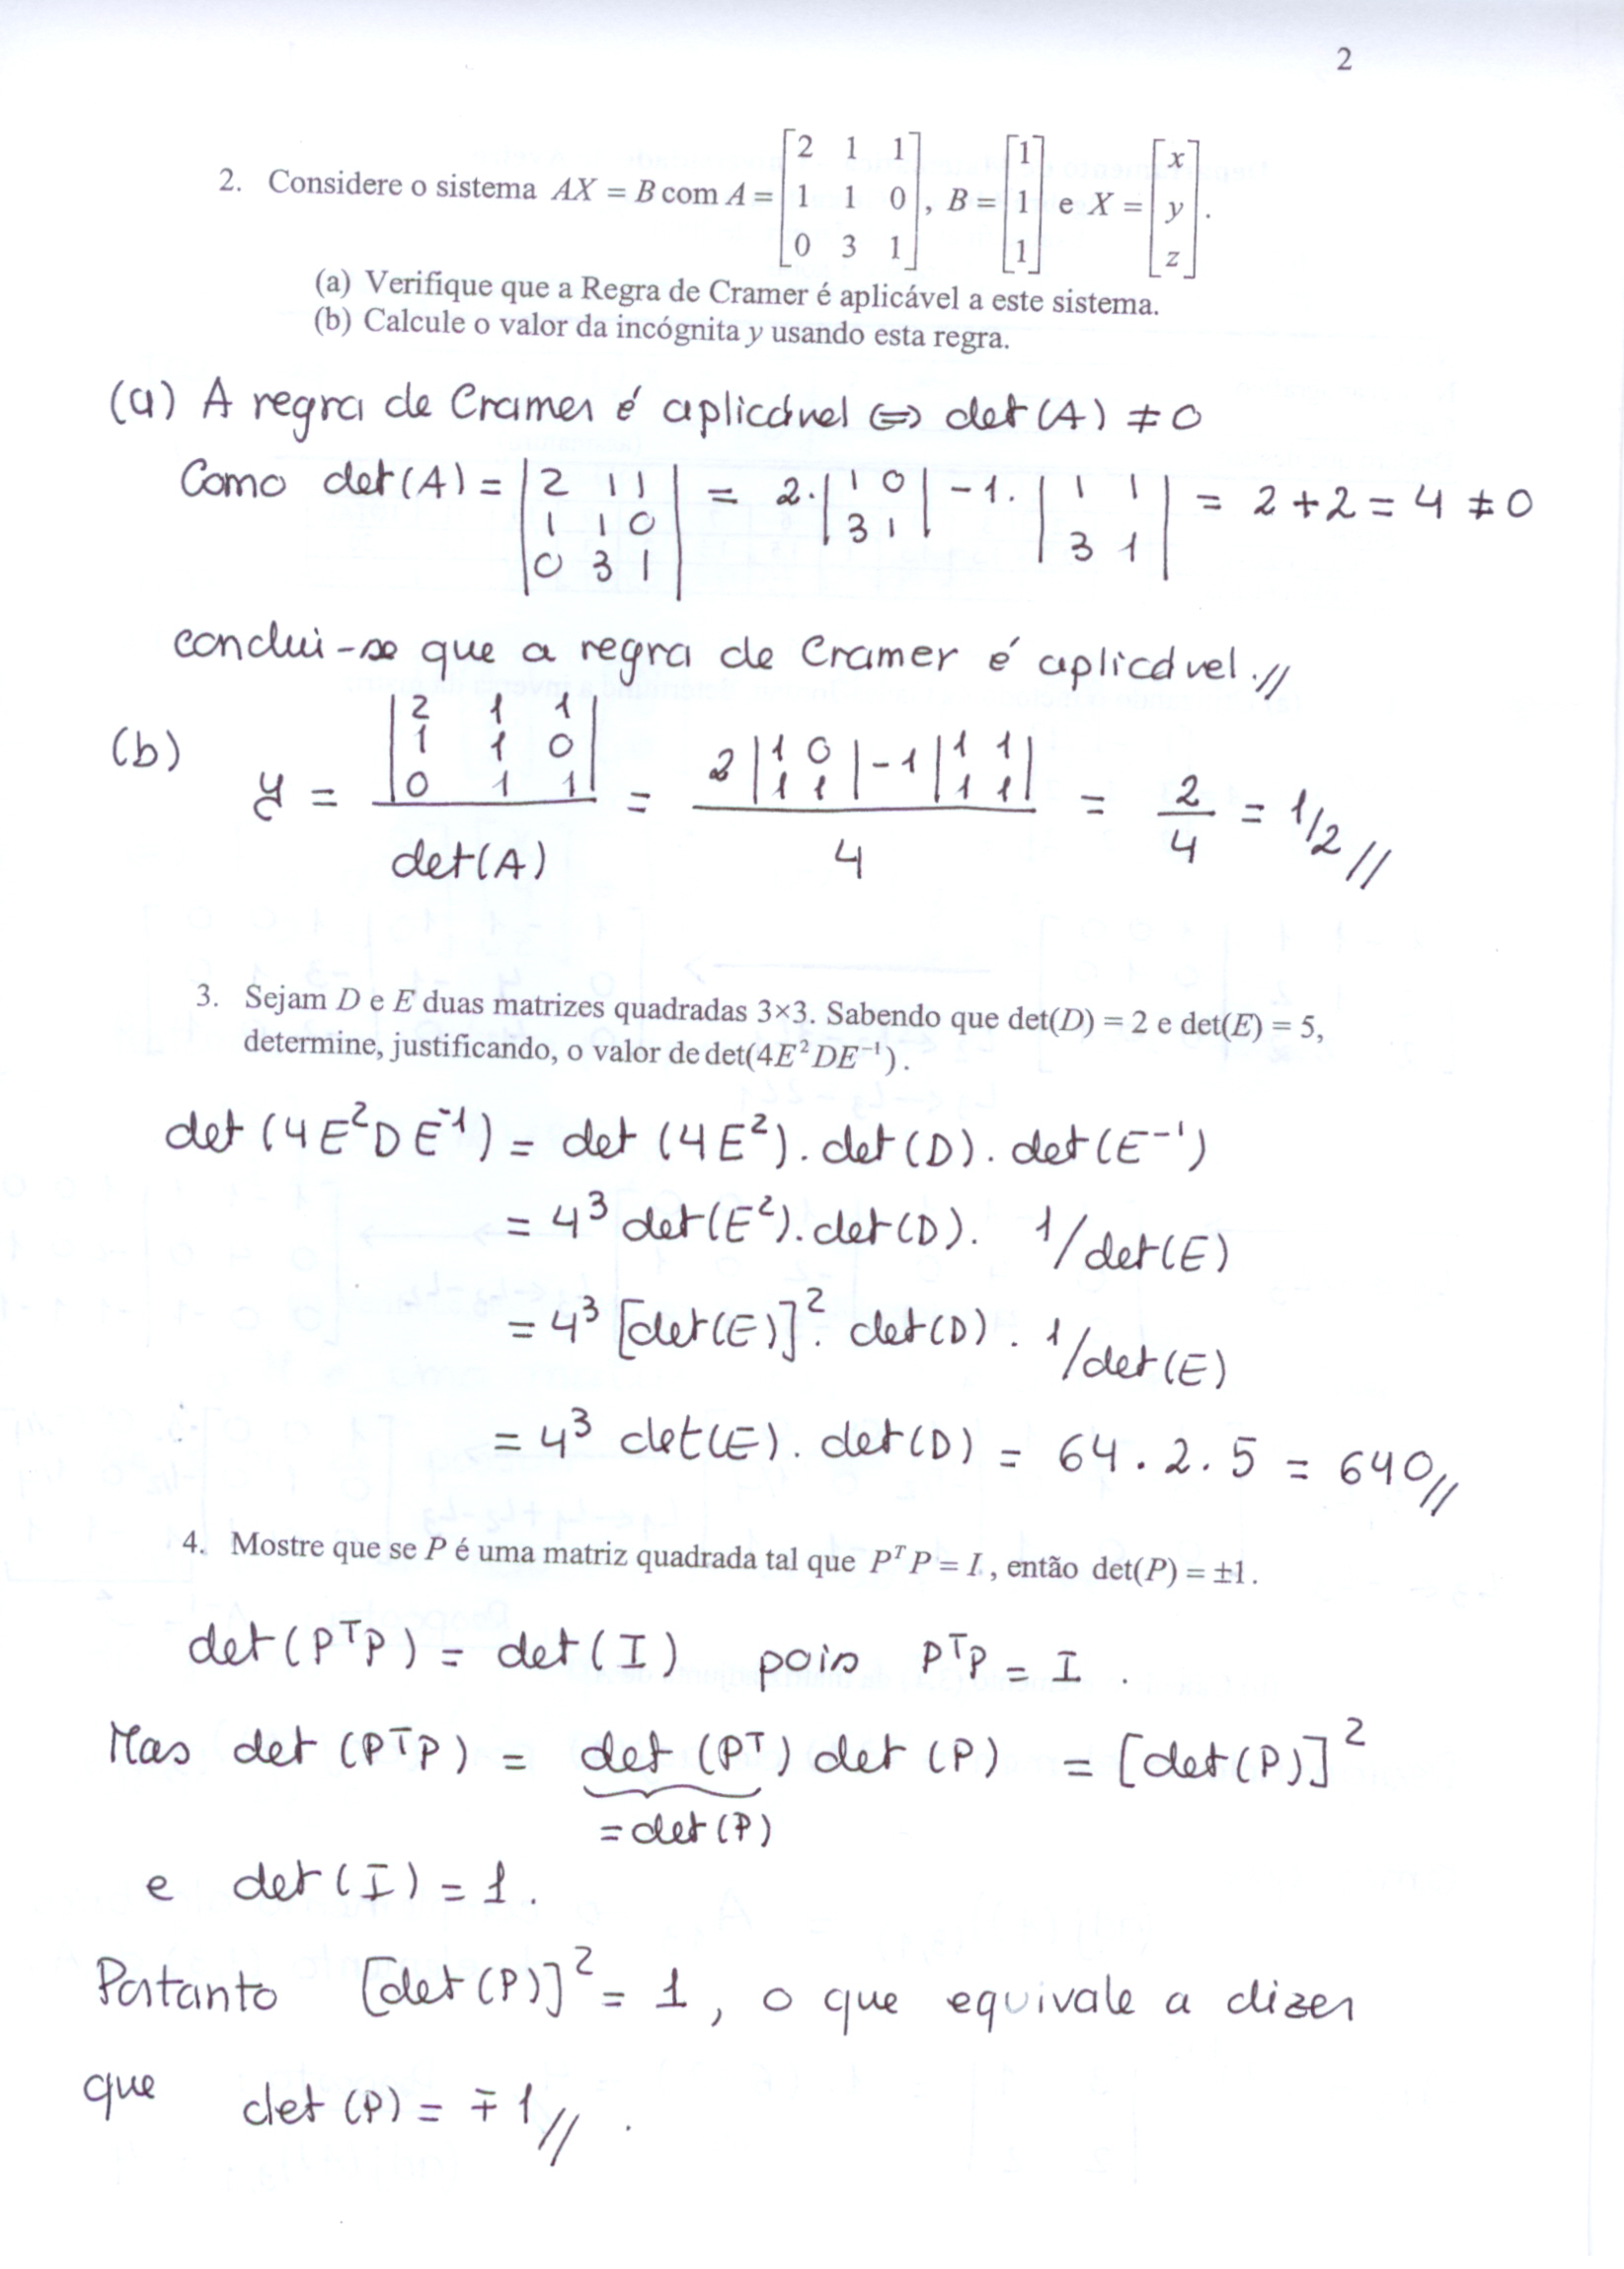 2
2. Considere o sistema AX = B com A = [2 1 1; 1 1 0; 0 3 1], B = [1; 1; 1] e X = [x; y; z].
(a) Verifique que a Regra de Cramer é aplicável a este sistema.
(b) Calcule o valor da incógnita y usando esta regra.
(a) A regra de Cramer é aplicável ⇔ det(A) ≠ 0
Como det(A) = |2 1 1; 1 1 0; 0 3 1| = 2.|1 0; 3 1| - 1.|1 1; 3 1| = 2 + 2 = 4 ≠ 0
conclui-se que a regra de Cramer é aplicável.//
(b) y = |2 1 1; 1 1 0; 0 1 1| / det(A) = (2|1 0; 1 1| - 1|1 1; 1 1|) / 4 = 2/4 = 1/2 //
3. Sejam D e E duas matrizes quadradas 3×3. Sabendo que det(D) = 2 e det(E) = 5,
determine, justificando, o valor de det(4E²DE⁻¹).
det(4E²DE⁻¹) = det(4E²).det(D).det(E⁻¹)
= 4³ det(E²).det(D). 1/det(E)
= 4³ [det(E)]². det(D). 1/det(E)
= 4³ det(E). det(D) = 64 . 2 . 5 = 640//
4. Mostre que se P é uma matriz quadrada tal que PᵀP = I, então det(P) = ±1.
det(PᵀP) = det(I) pois PᵀP = I .
Mas det(PᵀP) = det(Pᵀ) det(P) = [det(P)]²
= det(P)
e det(I) = 1.
Portanto [det(P)]² = 1, o que equivale a dizer
que det(P) = ∓1 // .